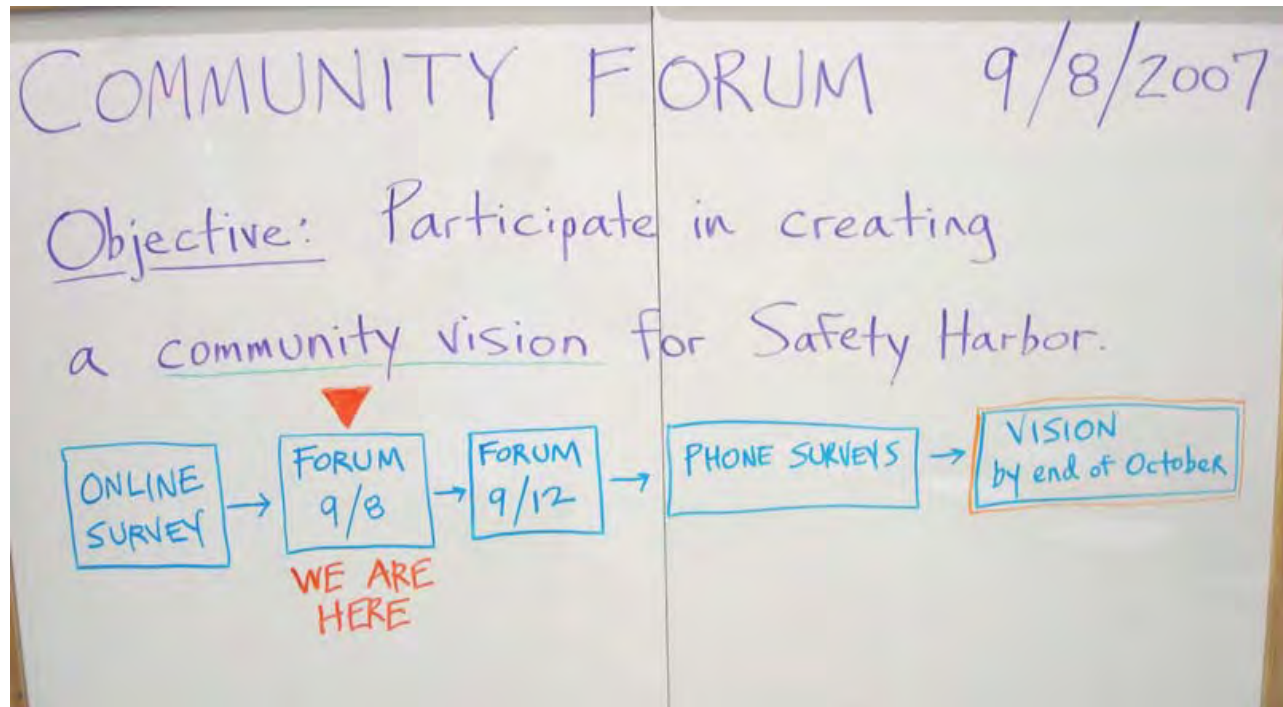 COMMUNITY FORUM 9/8/2007
Objective: Participate in creating
a community vision for Safety Harbor.
ONLINE
SURVEY
FORUM
9/8
FORUM
9/12
PHONE SURVEYS
VISION
by end of October
WE ARE
HERE